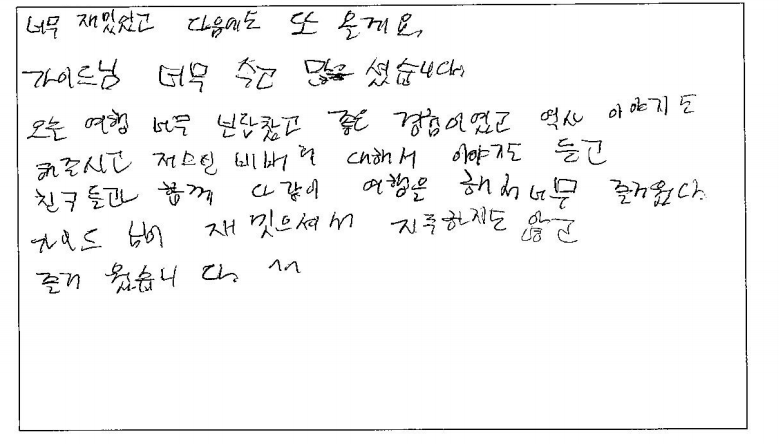 너무 재밌었고 다음에도 또 올게요.
가이드님 너무 수고 많으셨습니다.
오는 여행 너무 알찼고 좋은 경험이였고 역사 이야기도
해주시고 저스틴 비버 대해서 이야기도 듣고
친구들과 함께 다같이 여행을 해서 너무 즐거웠다.
가이드 님이 재밋으셔서 지루하지도 않고
즐거웠습니다. ^^